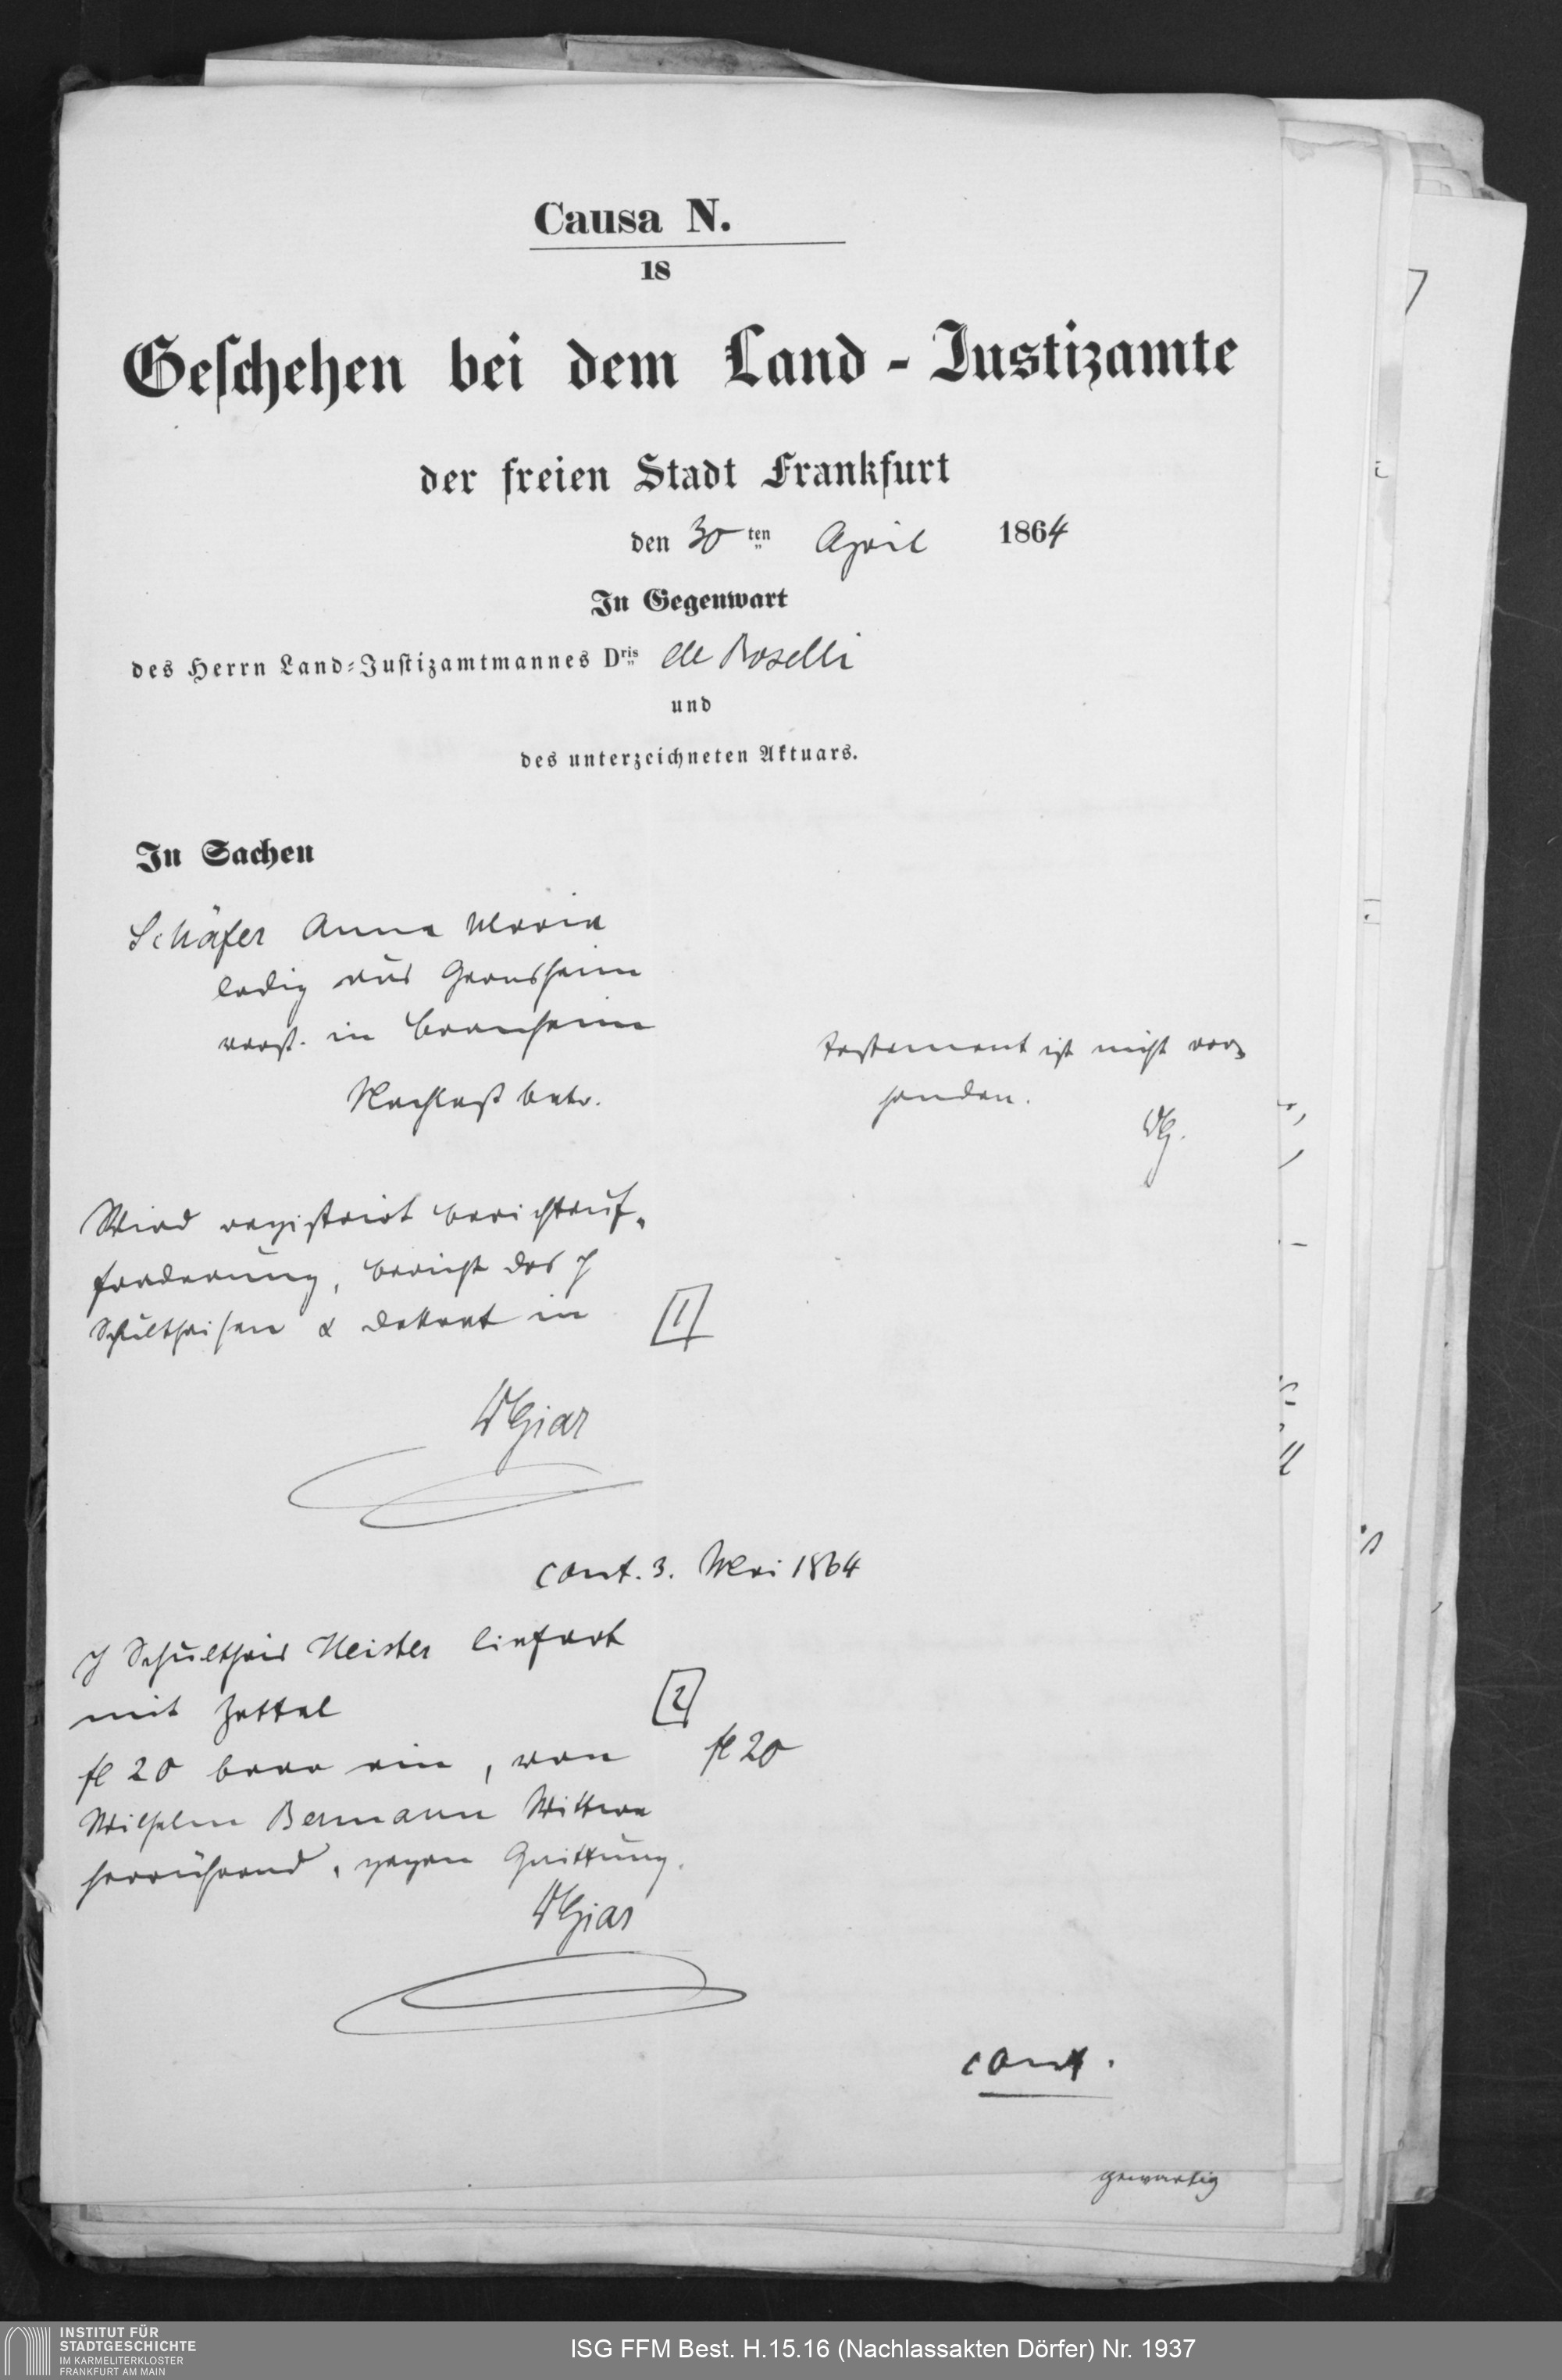 Causa N.
18
Geschehen bei dem Land-Justizamte
der freien Stadt Frankfurt
den 30ten April 1864
In Gegenwart
des Herrn Land-Justizamtmannes Dris de Boselli
und
des unterzeichneten Aktuars.
In Sachen
Schäfer Anna Maria
ledig aus Gernsheim
verst. in Bornheim
Nachlaß betr.
Testament ist nicht vor-
handen.
Wird registrirt Berichtauf-
forderung, Bericht des H
Schultheisen & Dekret in
[1]
WGiar
cont. 3. Mai 1864
H Schultheis Meister liefert
mit Zettel
[2]
fl 20 baar ein, von
fl 20
Wilhelm Bermann Wittwe
herrührend, gegen Quittung.
WGiar
cont.
gewärtig
INSTITUT FÜR
STADTGESCHICHTE
IM KARMELITERKLOSTER
FRANKFURT AM MAIN
ISG FFM Best. H.15.16 (Nachlassakten Dörfer) Nr. 1937